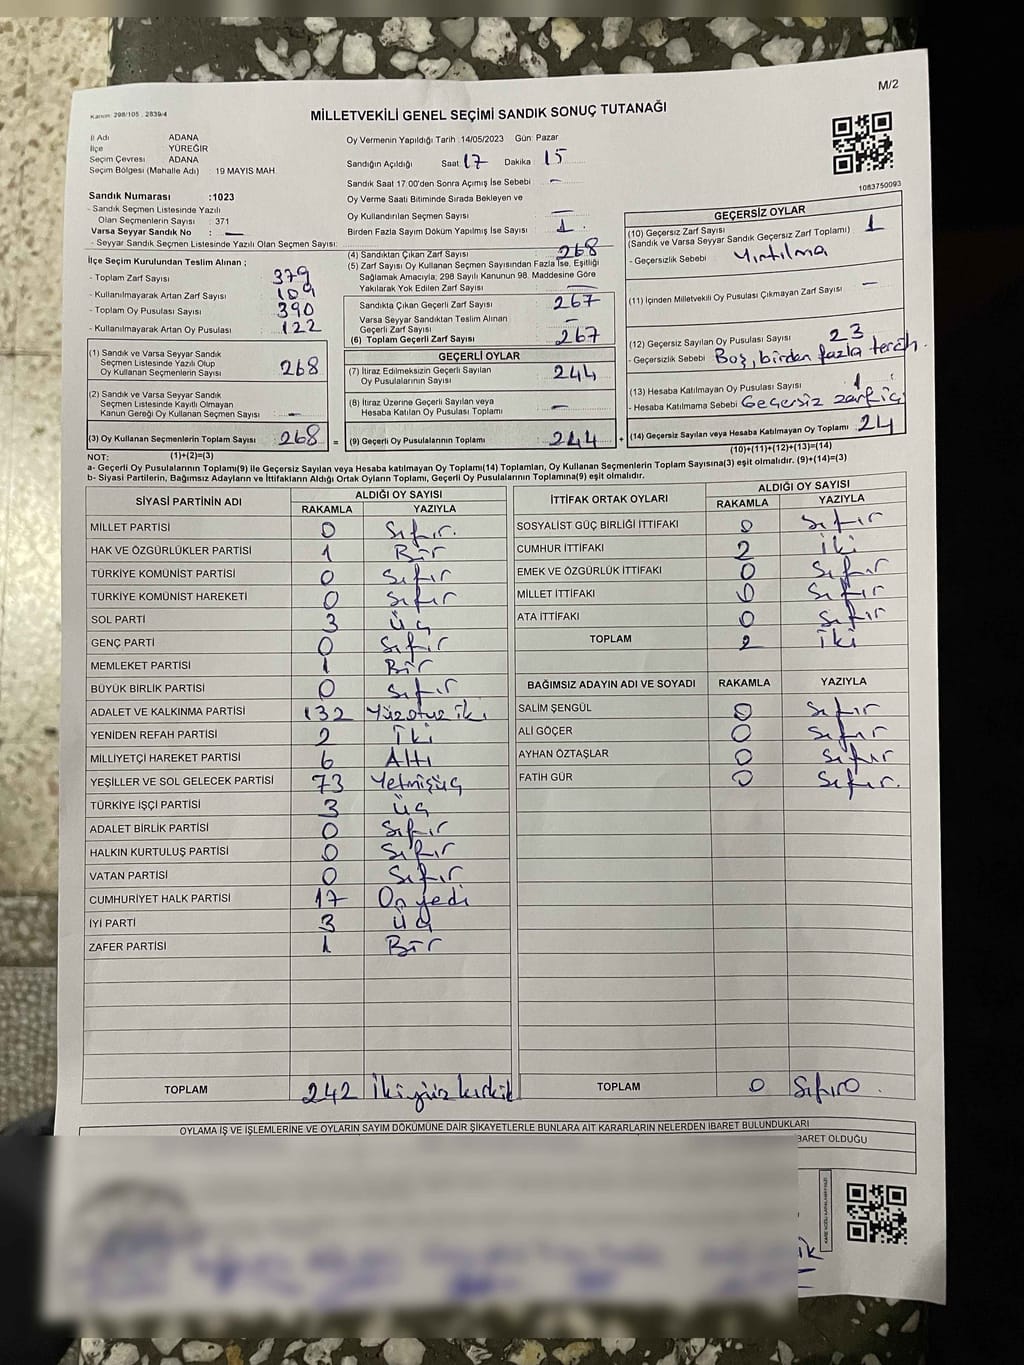 M/2
Kanun: 298/105 , 2839/4
MİLLETVEKİLİ GENEL SEÇİMİ SANDIK SONUÇ TUTANAĞI
İl Adı ADANA
İlçe YÜREĞİR
Seçim Çevresi ADANA
Seçim Bölgesi (Mahalle Adı) 19 MAYIS MAH.
Sandık Numarası :1023
- Sandık Seçmen Listesinde Yazılı
Olan Seçmenlerin Sayısı : 371
Varsa Seyyar Sandık No : —
- Seyyar Sandık Seçmen Listesinde Yazılı Olan Seçmen Sayısı:
İlçe Seçim Kurulundan Teslim Alınan ;
- Toplam Zarf Sayısı 379
- Kullanılmayarak Artan Zarf Sayısı : 109
- Toplam Oy Pusulası Sayısı 390
- Kullanılmayarak Artan Oy Pusulası 122
(1) Sandık ve Varsa Seyyar Sandık
Seçmen Listesinde Yazılı Olup
Oy Kullanan Seçmenlerin Sayısı 268
(2) Sandık ve Varsa Seyyar Sandık
Seçmen Listesinde Kayıtlı Olmayan
Kanun Gereği Oy Kullanan Seçmen Sayısı —
(3) Oy Kullanan Seçmenlerin Toplam Sayısı 268 =
Oy Vermenin Yapıldığı Tarih : 14/05/2023 Gün: Pazar
Sandığın Açıldığı Saat: 17 Dakika : 15
Sandık Saat 17:00'den Sonra Açımış İse Sebebi —
Oy Verme Saati Bitiminde Sırada Bekleyen ve
Oy Kullandırılan Seçmen Sayısı —
Birden Fazla Sayım Döküm Yapılmış İse Sayısı : 1
(4) Sandıktan Çıkan Zarf Sayısı 268
(5) Zarf Sayısı Oy Kullanan Seçmen Sayısından Fazla İse, Eşitliği
Sağlamak Amacıyla, 298 Sayılı Kanunun 98. Maddesine Göre
Yakılarak Yok Edilen Zarf Sayısı —
Sandıkta Çıkan Geçerli Zarf Sayısı 267
Varsa Seyyar Sandıktan Teslim Alınan
Geçerli Zarf Sayısı —
(6) Toplam Geçerli Zarf Sayısı : 267
GEÇERLİ OYLAR
(7) İtiraz Edilmeksizin Geçerli Sayılan
Oy Pusulalarının Sayısı 244
(8) İtiraz Üzerine Geçerli Sayılan veya
Hesaba Katılan Oy Pusulası Toplamı —
(9) Geçerli Oy Pusulalarının Toplamı 244 +
1083750093
GEÇERSİZ OYLAR
(10) Geçersiz Zarf Sayısı 1
(Sandık ve Varsa Seyyar Sandık Geçersiz Zarf Toplamı)
- Geçersizlik Sebebi Yırtılma
(11) İçinden Milletvekili Oy Pusulası Çıkmayan Zarf Sayısı —
(12) Geçersiz Sayılan Oy Pusulası Sayısı 23
- Geçersizlik Sebebi Boş, birden fazla tercih.
(13) Hesaba Katılmayan Oy Pusulası Sayısı 1
- Hesaba Katılmama Sebebi Geçersiz zarf içi
(14) Geçersiz Sayılan veya Hesaba Katılmayan Oy Toplamı 24
NOT: (1)+(2)=(3) (10)+(11)+(12)+(13)=(14)
a- Geçerli Oy Pusulalarının Toplamı(9) ile Geçersiz Sayılan veya Hesaba katılmayan Oy Toplamı(14) Toplamları, Oy Kullanan Seçmenlerin Toplam Sayısına(3) eşit olmalıdır. (9)+(14)=(3)
b- Siyasi Partilerin, Bağımsız Adayların ve İttifakların Aldığı Ortak Oyların Toplamı, Geçerli Oy Pusulalarının Toplamına(9) eşit olmalıdır.
SİYASİ PARTİNİN ADI ALDIĞI OY SAYISI
RAKAMLA YAZIYLA
MİLLET PARTİSİ 0 Sıfır.
HAK VE ÖZGÜRLÜKLER PARTİSİ 1 Bir
TÜRKİYE KOMÜNİST PARTİSİ 0 Sıfır
TÜRKİYE KOMÜNİST HAREKETİ 0 Sıfır
SOL PARTİ 3 Üç
GENÇ PARTİ 0 Sıfır
MEMLEKET PARTİSİ 1 Bir
BÜYÜK BİRLİK PARTİSİ 0 Sıfır
ADALET VE KALKINMA PARTİSİ 132 Yüzotuz iki
YENİDEN REFAH PARTİSİ 2 İki
MİLLİYETÇİ HAREKET PARTİSİ 6 Altı
YEŞİLLER VE SOL GELECEK PARTİSİ 73 Yetmişüç
TÜRKİYE İŞÇİ PARTİSİ 3 Üç
ADALET BİRLİK PARTİSİ 0 Sıfır
HALKIN KURTULUŞ PARTİSİ 0 Sıfır
VATAN PARTİSİ 0 Sıfır
CUMHURİYET HALK PARTİSİ 17 On yedi
İYİ PARTİ 3 Üç
ZAFER PARTİSİ 1 Bir
TOPLAM 242 İkiyüz kırkik
İTTİFAK ORTAK OYLARI ALDIĞI OY SAYISI
RAKAMLA YAZIYLA
SOSYALİST GÜÇ BİRLİĞİ İTTİFAKI 0 Sıfır
CUMHUR İTTİFAKI 2 İki
EMEK VE ÖZGÜRLÜK İTTİFAKI 0 Sıfır
MİLLET İTTİFAKI 0 Sıfır
ATA İTTİFAKI 0 Sıfır
TOPLAM 2 İki
BAĞIMSIZ ADAYIN ADI VE SOYADI RAKAMLA YAZIYLA
SALİM ŞENGÜL 0 Sıfır
ALİ GÖÇER 0 Sıfır
AYHAN ÖZTAŞLAR 0 Sıfır
FATİH GÜR 0 Sıfır.
TOPLAM 0 Sıfır0 .
OYLAMA İŞ VE İŞLEMLERİNE VE OYLARIN SAYIM DÖKÜMÜNE DAİR ŞİKAYETLERLE BUNLARA AİT KARARLARIN NELERDEN İBARET BULUNDUKLARI
BARET OLDUĞU